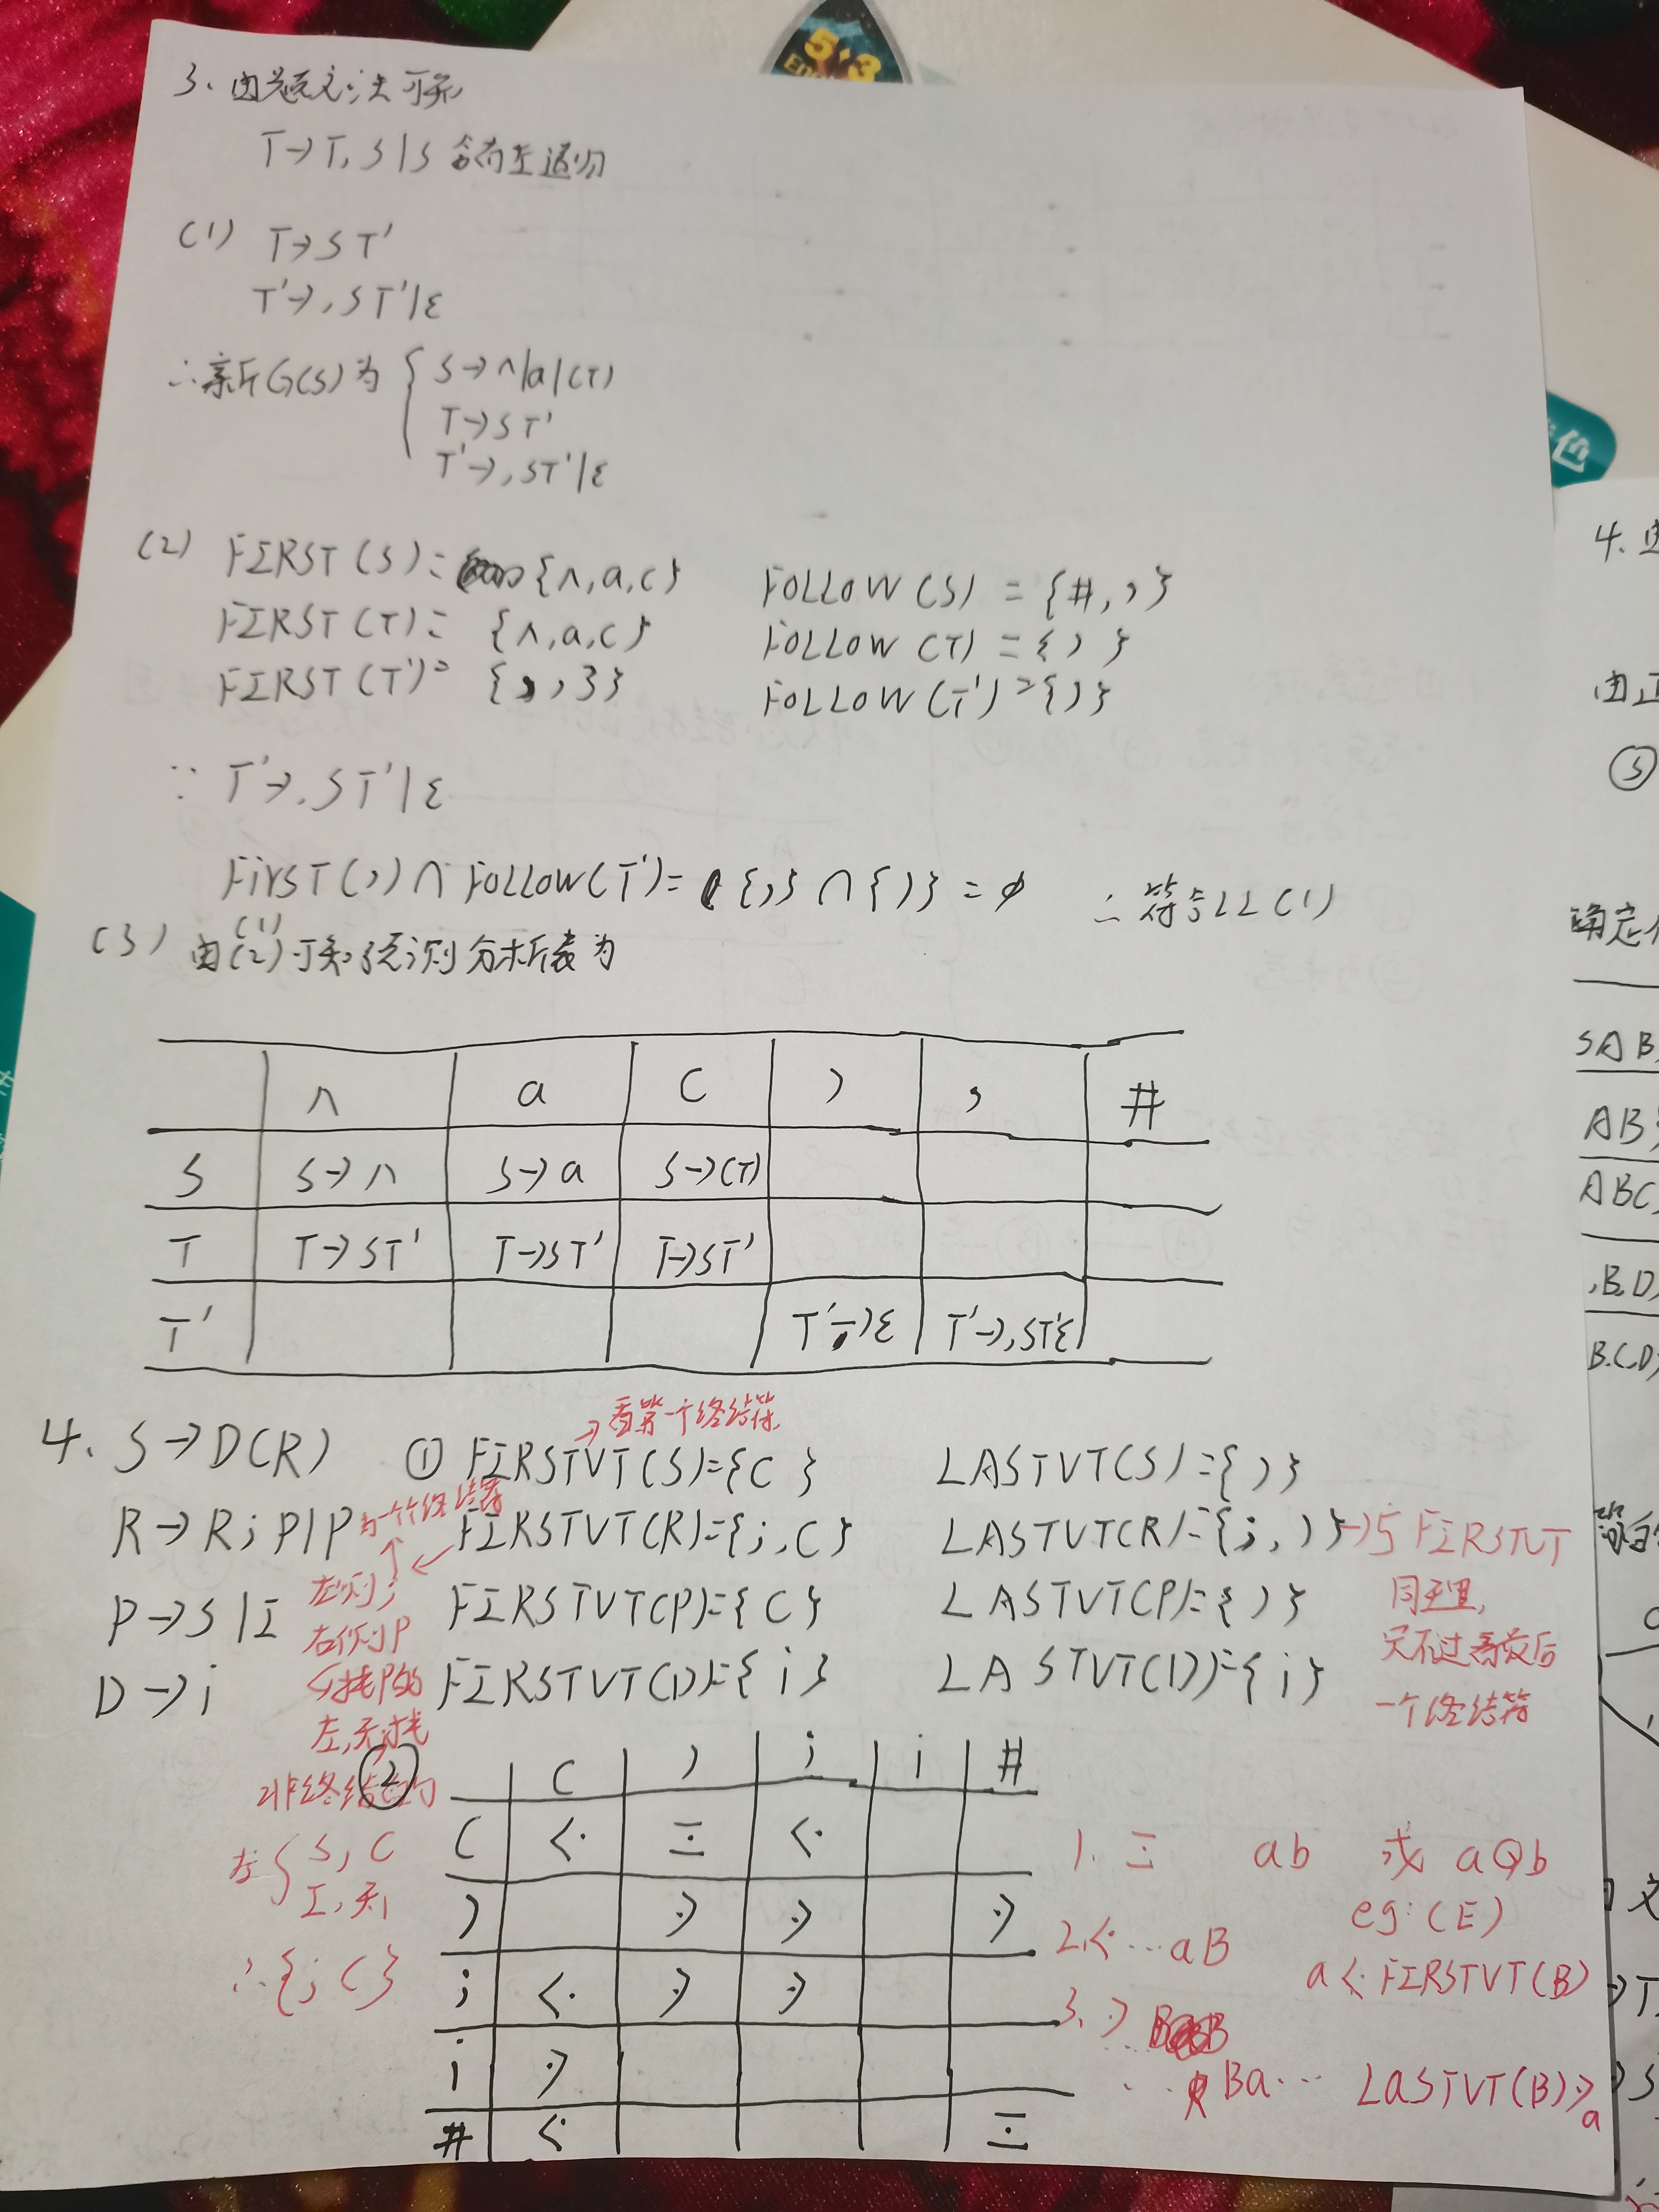 3. 由题文法可知
T→T,S|S 含有左递归
(1) T→ST'
T'→,ST'|ε
∴新G(S)为 { S→∧|a|(T)
T→ST'
T'→,ST'|ε
(2) FIRST(S)= {∧,a,(} FOLLOW(S) = {#,,}
FIRST(T)= {∧,a,(} FOLLOW(T) = {)}
FIRST(T')= {,,ε} FOLLOW(T')={)}
∵ T'→,ST'|ε
FirST(,)∩FOLLOW(T')= {,}∩{)} = ∅ ∴符合LL(1)
(3) 由(1)(2)可知预测分析表为
∧ a ( ) , #
S S→∧ S→a S→(T)
T T→ST' T→ST' T→ST'
T' T'→ε T'→,ST'ε
→看第一个终结符
4. S→D(R) ① FIRSTVT(S)={(} LASTVT(S)={)}
R→R;P|P 为一个终结符 FIRSTVT(R)={;,(} LASTVT(R)={;,)}→与FIRSTVT
P→S|I 左侧; FIRSTVT(P)={(} LASTVT(P)={)} 同理,
右侧P 只不过看最后
D→i 找P的 FIRSTVT(D)={i} LASTVT(D)={i} 一个终结符
左,无,找
非终结 ② ( ) ; i #
左{S,( ( ⋖ ≡ ⋖ 1. ≡ ab 或 aQb
I,无 eg:(E)
) ⋗ ⋗ ⋗ 2.⋖ …aB
∴{; (} ; ⋖ ⋗ ⋗ a⋖FIRSTVT(B)
3. ⋗
i ⋗ … Ba… LaSTVT(B)⋗a
# ⋖ ≡
5·3
色
4.
由
⑤
确定
SAB
AB
ABC
,B,D
B,C,D
文